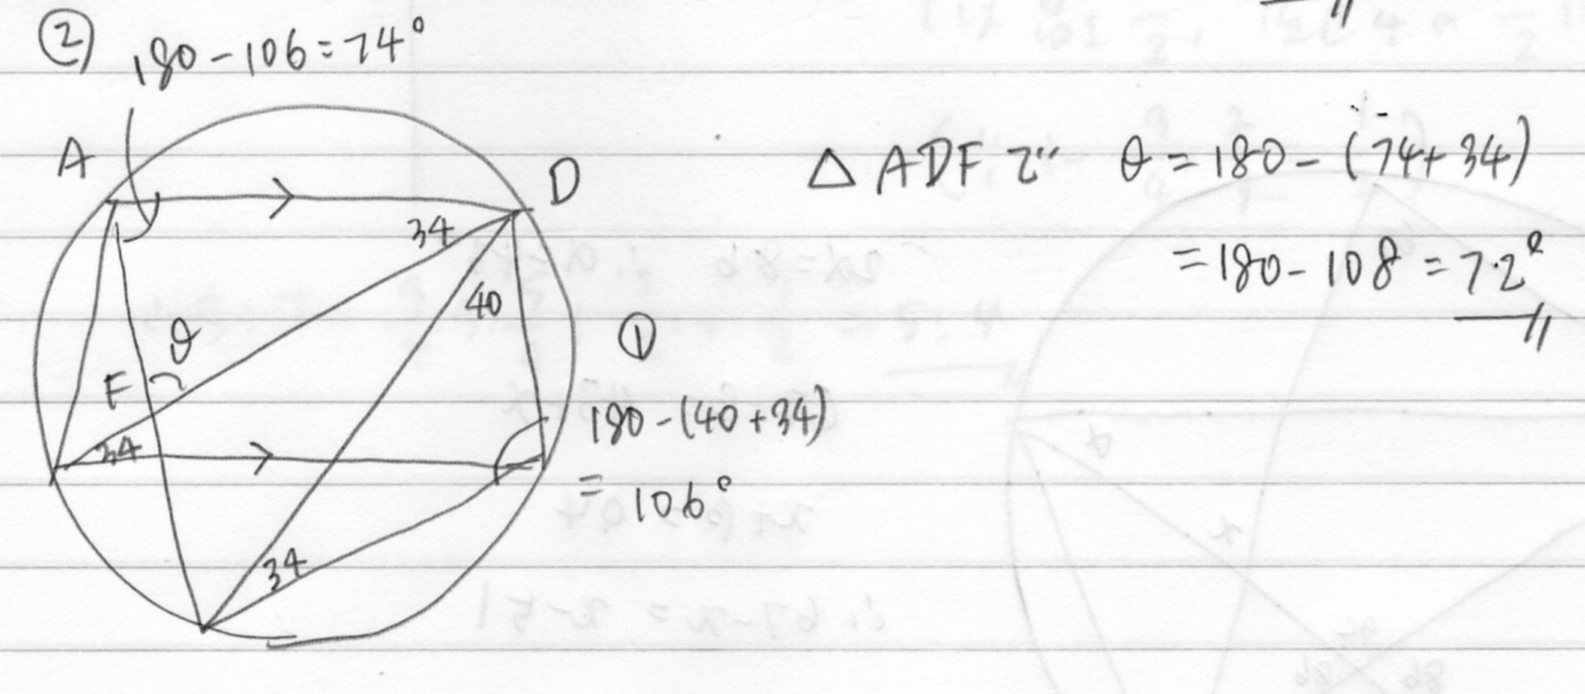 ②
180-106=74°
A
D
34
40
θ
F
34
34
①
180-(40+34)
= 106°
△ ADF で θ = 180-(74+34)
= 180-108 = 72°